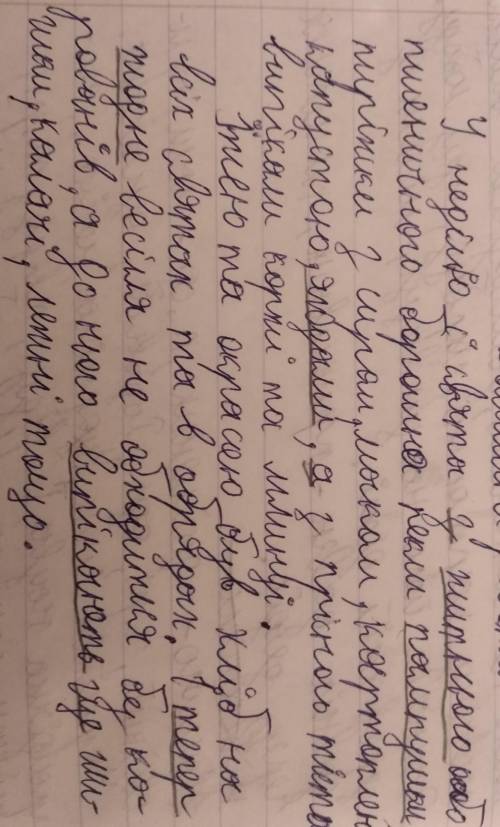 У неділю і свята з житнього або
пшеничного борошна пекли пампушки
пиріжки з сиром, маком, картоплею
капустою, ягодами, а з прісного тіста
випікали коржі та млинці.
Їжею та окрасою був хліб на
всіх святах та в обрядах. І тепер
жодне весілля не обходиться без ко-
роваїв, а до нього випікають ще ши-
шки, калачі, лежні тощо.